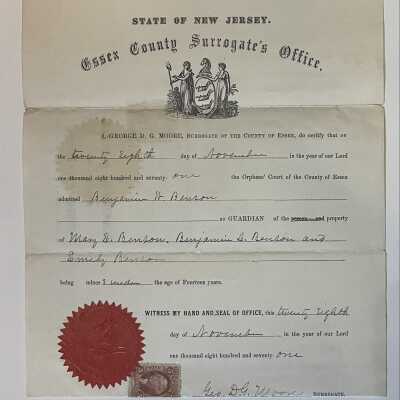 STATE OF NEW JERSEY.
Essex County Surrogate's Office.
I, GEORGE D. G. MOORE, SURROGATE OF THE COUNTY OF ESSEX, do certify that on
the twenty Eighth day of November in the year of our Lord
one thousand eight hundred and seventy-one the Orphans' Court of the County of Essex
admitted Benjamin W Benson
as GUARDIAN of the person and property
of Mary D. Benson, Benjamin S. Benson and
Emily Benson
being minor s under the age of Fourteen years.
WITNESS MY HAND AND SEAL OF OFFICE, this twenty Eighth
day of November in the year of our Lord
one thousand eight hundred and seventy-one
Geo. D. G. Moore SURROGATE.